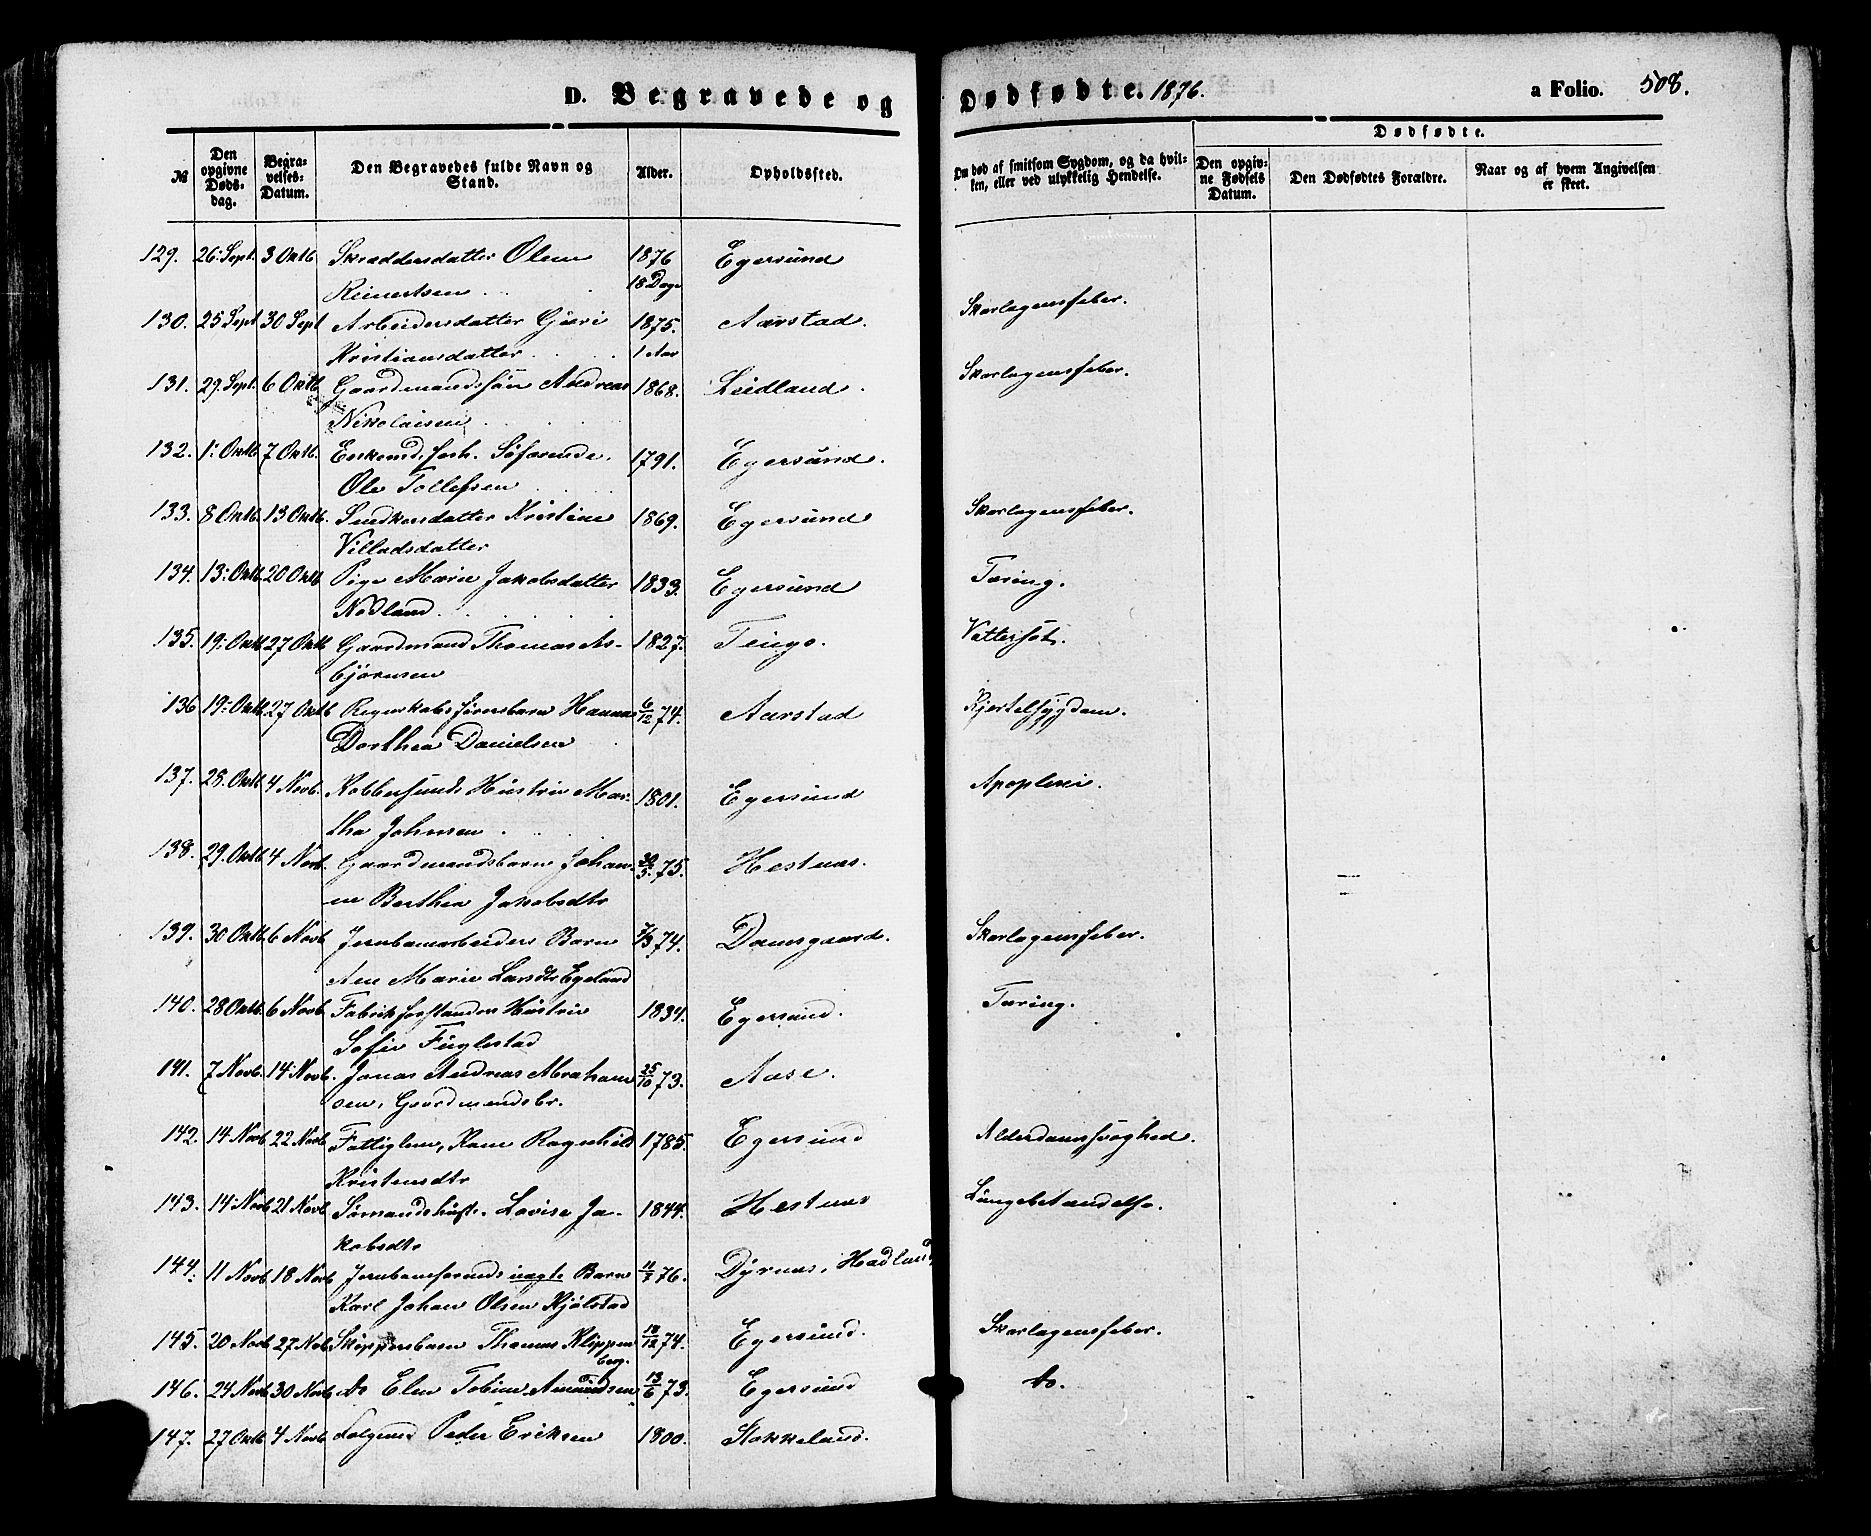 D. Begravede og Dødfødte. 1876. a Folio. 508.
Dødfødte.
№ Den opgivne Dødsdag. Begravelses-Datum. Den Begravedes fulde Navn og Stand. Alder. Opholdssted. Om død af smitsom Sygdom, og da hvilken, eller ved ulykkelig Hendelse. Den opgivne Fødsels Datum. Den Dødfødtes Forældre. Naar og af hvem Angivelsen er skeet.
129. 26: Sept. 3 Oktb Skræddersdatter Oline 1876 Egersund
Reinertsen 18 Dage
130. 25 Sept 30 Sept Arbeidersdatter Gjæri 1875. Aarstad. Skarlagensfeber.
Kristiansdatter 1 Aar
131. 29. Sept. 6 Oktb Gaardmandssøn Andreas 1868. Leidland. Skarlagensfeber.
Nikolaisen
132. 1: Oktb 7 Oktb. Enkemd, forh. Søfarende. 1791. Egersund.
Ole Tollefsen
133. 8 Oktb. 13 Oktb. Snedkersdatter Kristine 1869. Egersund Skarlagensfeber.
Villadsdatter
134. 13: Oktb. 20 Oktb Pige Marie Jakobsdatter 1833. Egersund Tæring.
Nodland
135. 19: Oktb. 27 Oktb Gaardmand Thomas As- 1827. Tengs. Vattersot.
bjørnsen
136 19: Oktb. 27 Oktb Regnskabsførersbarn Hanna 6/12 74. Aarstad Kjertelsygdom.
Dorthea Danielsen
137. 28. Oktb. 4 Novb. Kobbersmeds Hustru Mar- 1801. Egersund Apoplexi.
tha Johnsen
138. 29. Oktb. 4 Novb. Gaardmandsbarn Johan- 75. Hestnæs.
ne Berthea Jakobsdtr
139. 30 Oktb. 6 Novb Jernbanearbeiders Barn 7/3 74. Damsgaard. Skarlagensfeber.
Ane Marie Larsdtr Egeland
140. 28 Oktb. 6 Novb. Fabrikforstanders Hustru 1834. Egersund. Tæring.
Sofie Fuglestad
141. 7 Novb. 14 Novb. Jonas Andreas Abraham 25/10 73. Aase.
sen, Gaardmandsbr.
142. 14 Novb. 22 Novb Fattiglem, Kone Ragnhild 1785. Egersund Alderdomssvaghed.
Kristensdtr
143. 14: Novb 21 Novb. Sømandshust. Lovise Ja- 1844. Hestnæs Lungebetændelse.
kobsdtr
144. 11 Novb. 18 Novb Jernbaneformands uægte Barn 11/7 76. Dyrnæs, Hadland
Karl Johan Olsen Kjølstad
145. 20 Novb. 27 Nov. Skippersbarn Thomas Klippen 18/12 74. Egersund. Skarlagensfeber.
berg.
146. 24 Novb. 30 Novb do Elen Tobine Amundsen 13/6 73. Egersund do.
147. 27 Oktb 4 Novb Lægmd Peder Eriksen 1800. Stokkeland.